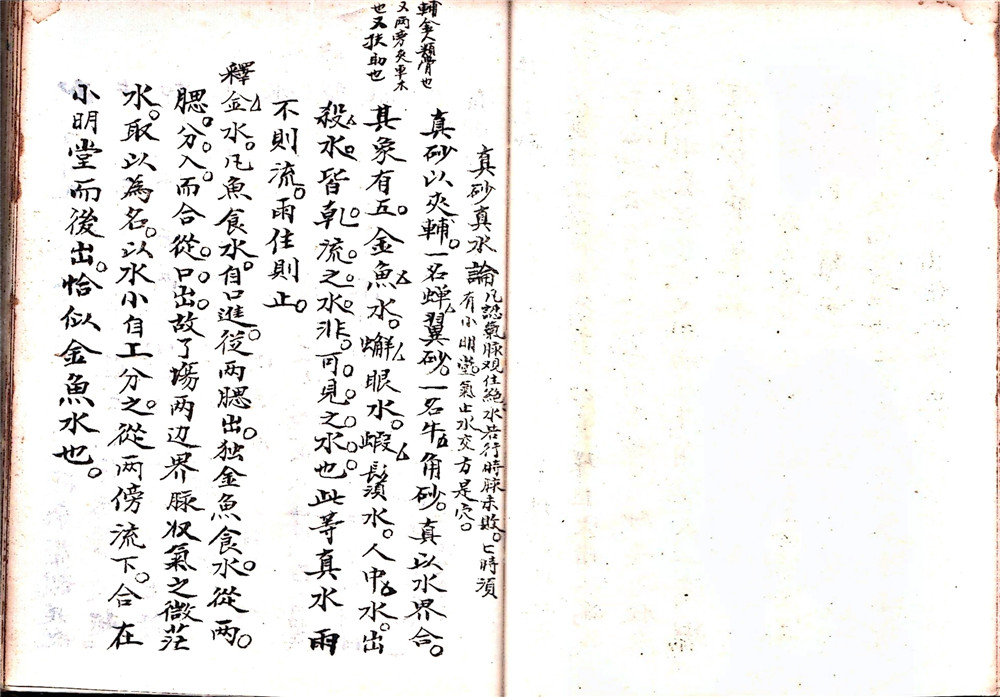 真砂真水論
凡認氣脉观住絶水若行時脉未敗。匕時須
有小明堂。氣止水交方是穴。
真砂以夾輔。一名蝉翼砂。一名牛角砂。真以水界合。
其象有五。金魚水。蠏眼水。蝦鬚水。人中水。出
殺水。皆乹流之水。非可見之水也。此等真水雨
不則流。雨住則止。
釋金水。凢魚食水。自口進。従两腮出。独金魚食水。從两
腮。分入而合從口出。故了塲两边界脉収氣之微茫
水。取以為名。以水小自工分之。從两傍流下。合在
小明堂而後出。恰似金魚水也。
輔金人類骨也
又两旁夾車木
也又扶助也